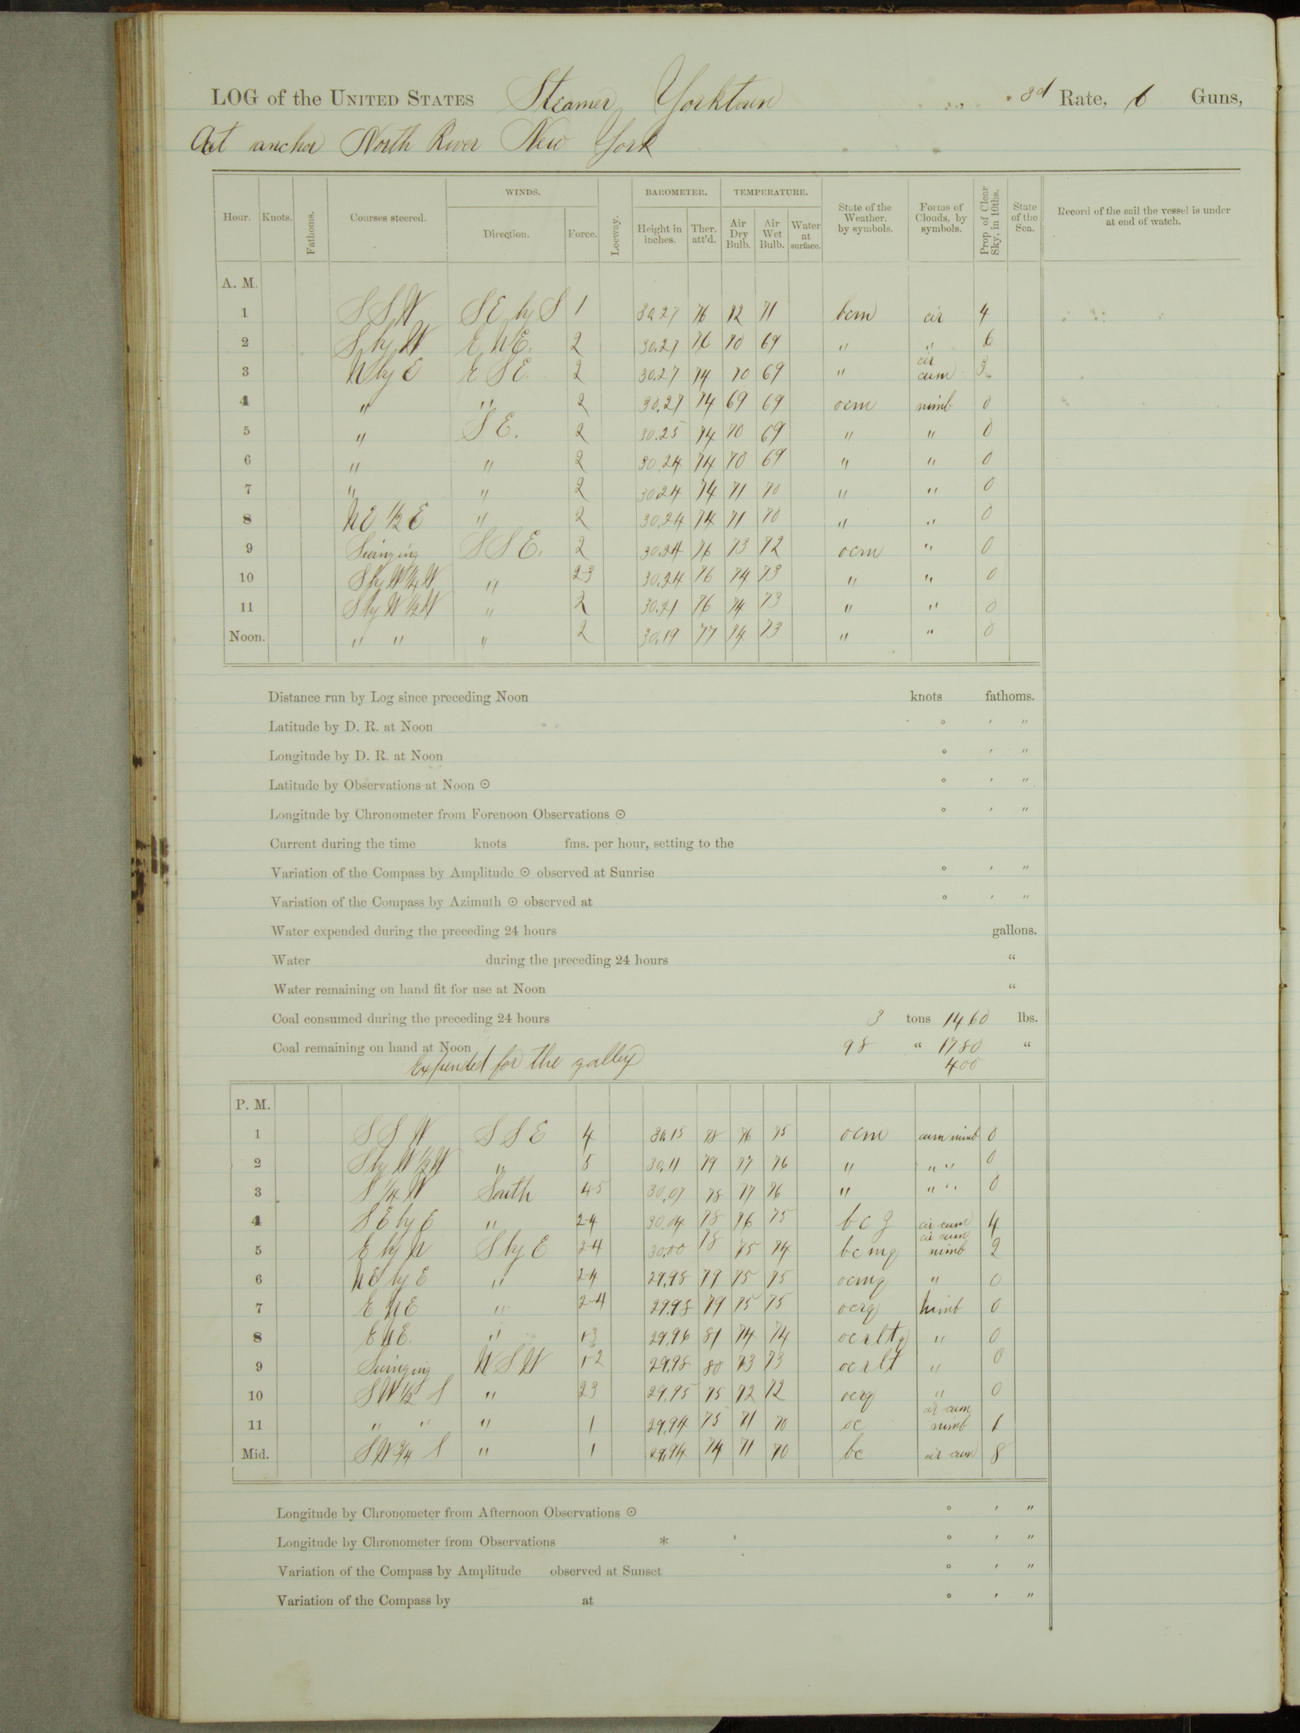 LOG of the UNITED STATES Steamer Yorktown 3d Rate, 6 Guns,
At anchor North River New York
WINDS. BAROMETER. TEMPERATURE.
Hour. Knots. Fathoms. Courses steered. Direction. Force. Leeway. Height in inches. Ther. att'd. Air Dry Bulb. Air Wet Bulb. Water at surface. State of the Weather. by symbols. Forms of Clouds, by symbols. Prop of Clear Sky, in 10ths. State of the Sea. Record of the sail the vessel is under at end of watch.
A. M.
1 S S W S E by S 1 30.27 76 72 71 bcm cir 4
2 S by W E N E. 2 30.27 76 70 69 " " 6
3 N by E E S E. 2 30.27 74 70 69 " cir cum 3
4 " " 2 30.27 74 69 69 ocm nimb 0
5 " S E. 2 30.25 74 70 69 " " 0
6 " " 2 30.24 74 70 69 " " 0
7 " " 2 30.24 74 71 70 " " 0
8 N E 1/2 E " 2 30.24 74 71 70 " " 0
9 Swinging S S E. 2 30.24 76 73 72 ocm " 0
10 S by W 1/2 W " 2-3 30.24 76 74 73 " " 0
11 S by W 1/2 W " 2 30.21 76 74 73 " " 0
Noon. " " " 2 30.19 77 74 73 " " 0
Distance run by Log since preceding Noon knots fathoms.
Latitude by D. R. at Noon ° ′ ″
Longitude by D. R. at Noon ° ′ ″
Latitude by Observations at Noon ⊙ ° ′ ″
Longitude by Chronometer from Forenoon Observations ⊙ ° ′ ″
Current during the time knots fms. per hour, setting to the
Variation of the Compass by Amplitude ⊙ observed at Sunrise ° ′ ″
Variation of the Compass by Azimuth ⊙ observed at ° ′ ″
Water expended during the preceding 24 hours gallons.
Water during the preceding 24 hours "
Water remaining on hand fit for use at Noon "
Coal consumed during the preceding 24 hours 3 tons 1460 lbs.
Coal remaining on hand at Noon 98 " 1780 "
Expended for the galley 400
P. M.
1 S S W S S E 4 30.15 78 76 75 ocm cum nimb 0
2 S by W 1/2 W " 5 30.11 79 77 76 " " " 0
3 S 1/4 W South 4-5 30.07 78 77 76 " " " 0
4 S E by E " 2-4 30.04 78 76 75 b c g cir cum 4
5 E by N S by E 2-4 30.00 78 75 74 bc mq cir cum nimb 2
6 N E by E " 2-4 29.98 79 75 75 ocmq " 0
7 E N E " 2-4 29.98 79 75 75 ocrq nimb 0
8 E N E. " 1-3 29.96 81 74 74 ocrltq " 0
9 Swinging W S W 1-2 29.98 80 73 73 ocrlt " 0
10 S W 1/2 S " 2-3 29.95 75 72 72 ocrq " 0
11 " " " 1 29.94 75 71 70 oc cir cum nimb 1
Mid. S W 3/4 S " 1 29.94 74 71 70 bc cir cum 8
Longitude by Chronometer from Afternoon Observations ⊙ ° ′ ″
Longitude by Chronometer from Observations * ° ′ ″
Variation of the Compass by Amplitude observed at Sunset ° ′ ″
Variation of the Compass by at ° ′ ″